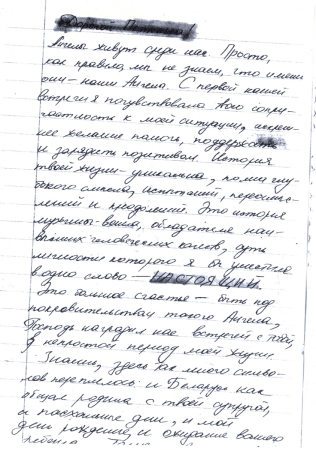 Дорогой
Ангелы живут среди нас. Просто,
как правило, мы не знаем, что именно
они – наши Ангелы. С первой нашей
встречи я почувствовала твою сопри-
частность к моей ситуации, искрен-
нее желание помочь, поддержать
и зарядить позитивом. История
твоей жизни – уникальна, полна глу-
бокого смысла, испытаний, переосмыс-
лений и преодолений. Это история
мужчины-воина, обладателя наи-
высших человеческих качеств, суть
личности которого я бы уместила
в одно слово – НАСТОЯЩИЙ.
Это большое счастье – быть под
покровительством такого Ангела,
Господь наградил нас встречей с тобой,
в непростой период моей жизни.
Знаешь, здесь так много симво-
лов переплелось: и Беларусь как
общая родина с твоей супругой,
и пасхальные дни, и мой
день рождения, и ожидание вашего